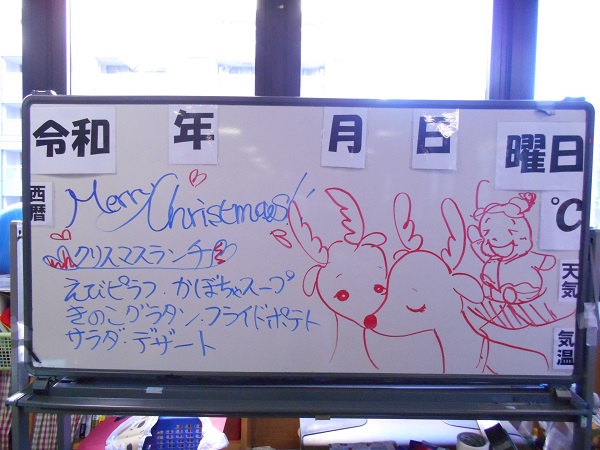 令和 年 月 日 曜日
西暦
Merry Christmas!
℃
クリスマスランチ
えびピラフ.かぼちゃスープ
天気
きのこグラタン.フライドポテト
サラダ.デザート
気温